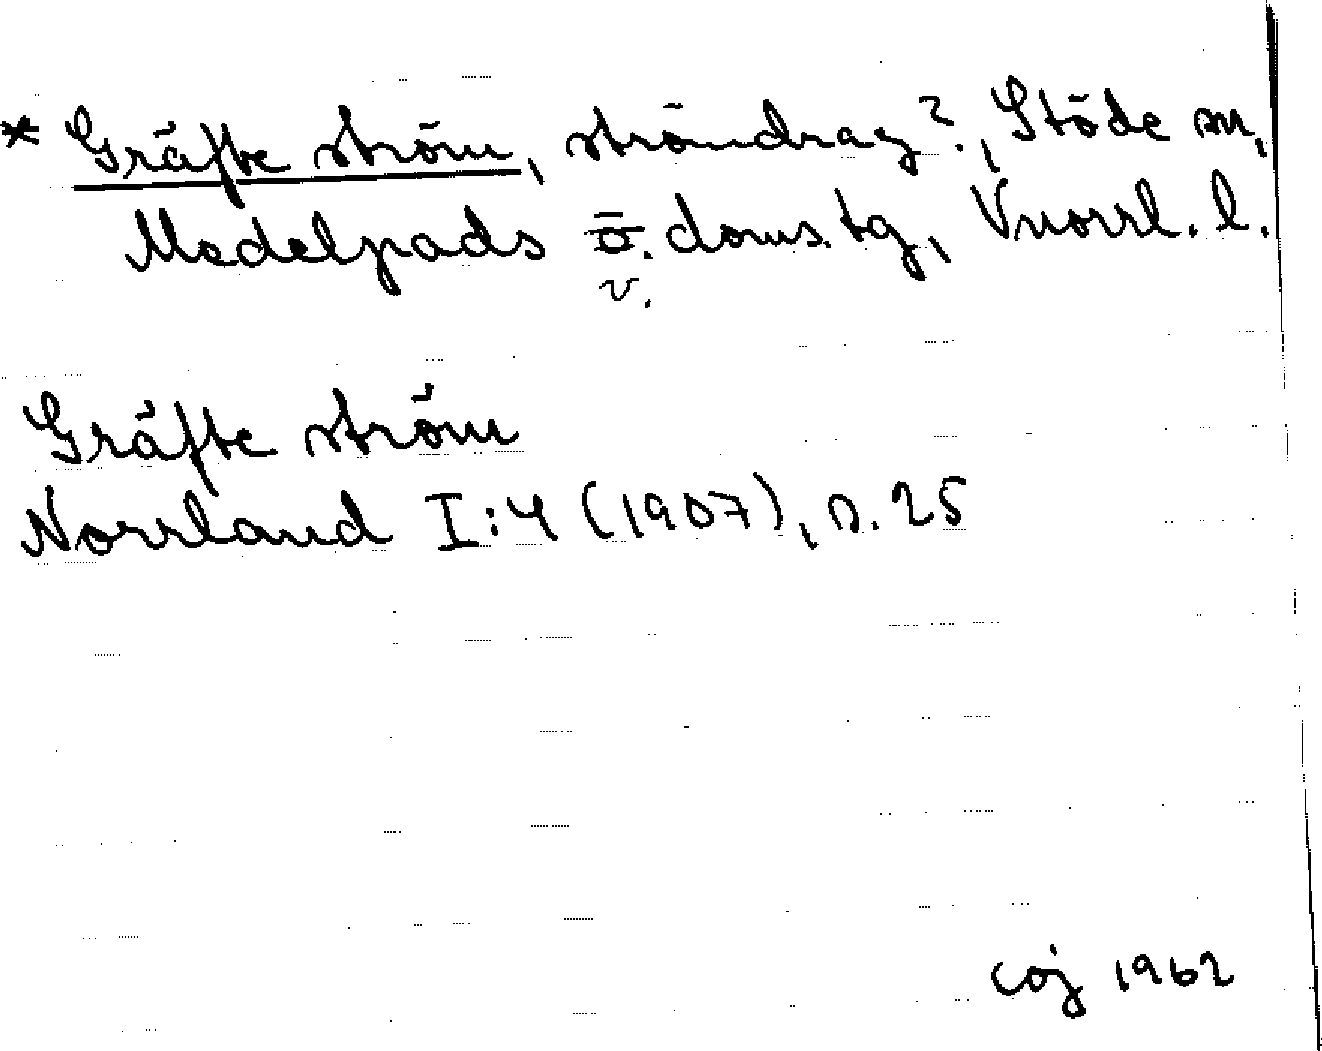 * Gräfte ström, strömdrag?, Stöde sn,
Medelpads ö. doms. tg, Vnorrl. l.
v.
Gräfte ström
Norrland I:4 (1907), s. 25
coj 1962